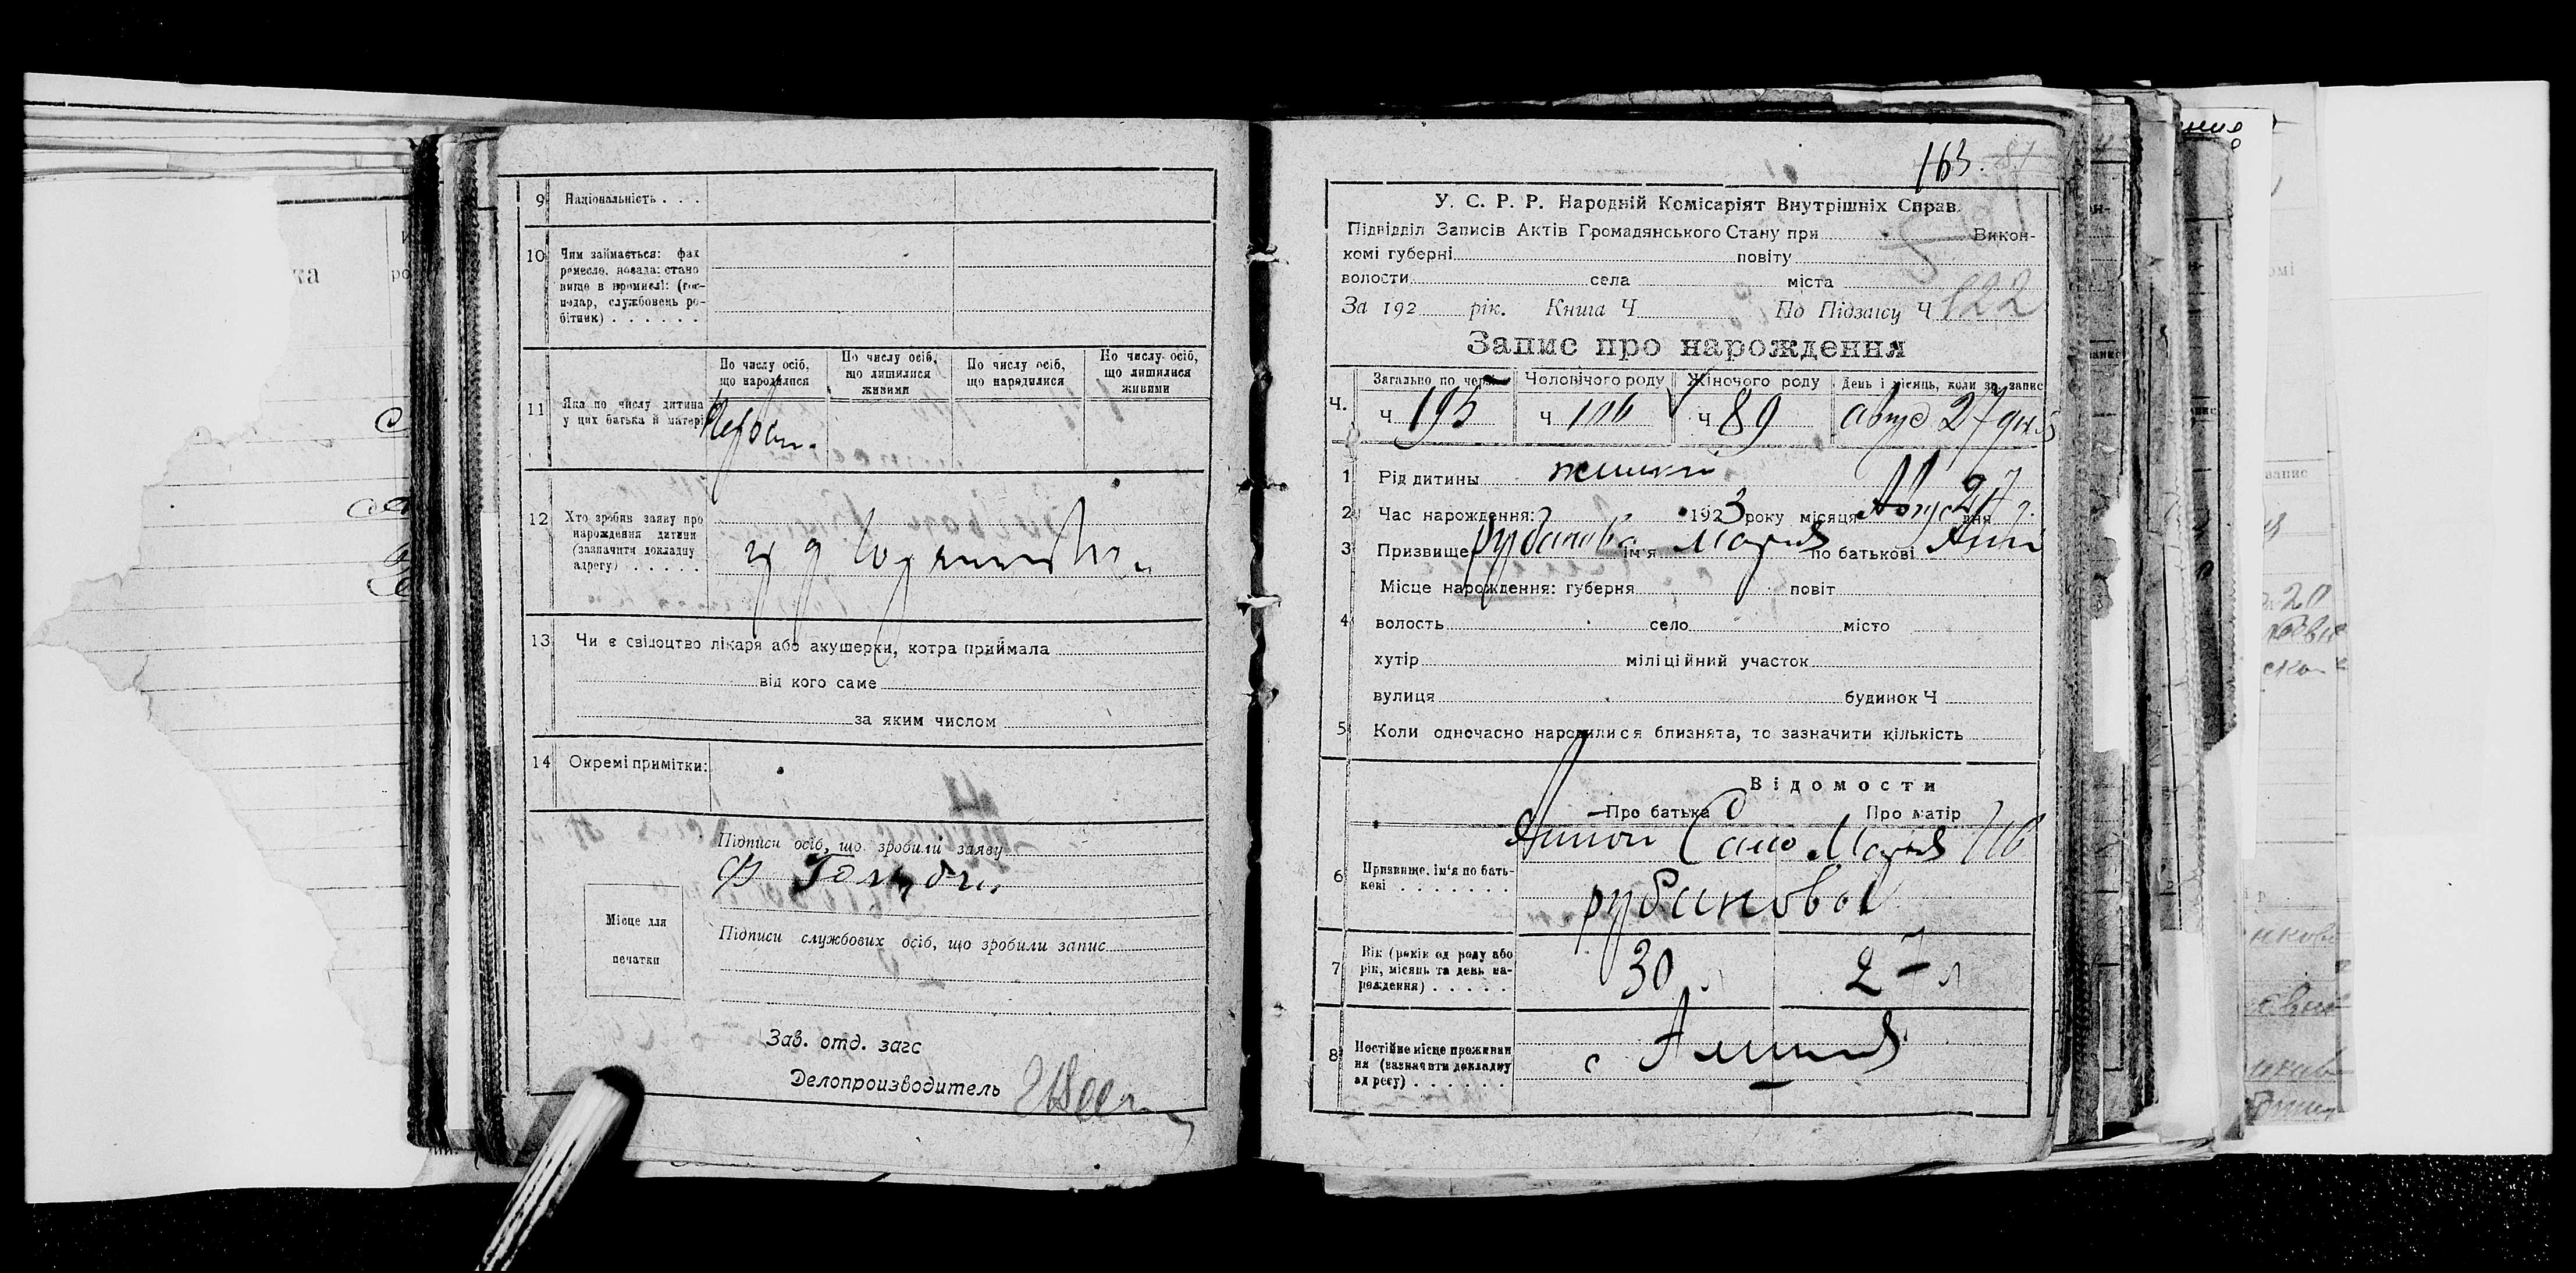 9 Національність . . .
10 Чим займається: фах
ремесло, посада: стано
вище в промислі: (гос-
подар, службовець ро-
бітник) . . . . . .
По числу осіб, що народилися
По числу осіб, що лишилися живими
По числу осіб, що народилися
По числу осіб, що лишилися живими
11 Яка по числу дитина
у цих батька й матері
12 Хто зробив заяву про
нарождення дитини
(зазначити докладну
адресу) . . . . .
13 Чи є свідоцтво лікаря або акушерки, котра приймала
від кого саме
за яким числом
14 Окремі примітки:
Підписи осіб, що зробили заяву
Місце для
печатки
Підписи службових осіб, що зробили запис
Зав. отд. загс
Делопроизводитель
163
У. С. Р. Р. Народній Комісаріят Внутрішніх Справ.
Підвідділ Записів Актів Громадянського Стану при Викон-
комі губерні повіту
волости села міста
За 192 рік. Книга Ч По Підзагсу Ч 122
Запис про нарождення
Загально по черзі Чоловічого роду Жіночого роду День і місяць, коли зр. запис
Ч. ч 195 ч 106 ч 89 авус 27 дня
1 Рід дитины женски
2 Час нарождення: 1923 року місяця Авус дня 27
3 Призвище Рубанова ім'я Мария по батькові Анто
Місце нарождення: губерня повіт
4 волость село місто
хутір міліційний участок
вулиця будинок Ч
5 Коли одночасно народилися близнята, то зазначити кількість
Відомости
Про батька Про матір
Антон Само Мария
6 Призвище, ім'я по бать-
кові . . . . . . .
Рубановы
7 Вік (років од роду або
рік, місяць та день на-
рождення) . . . . .
30 л 27 л
8 Постійне місце проживан
ня (зазначити докладну
адресу) . . . . . .
с